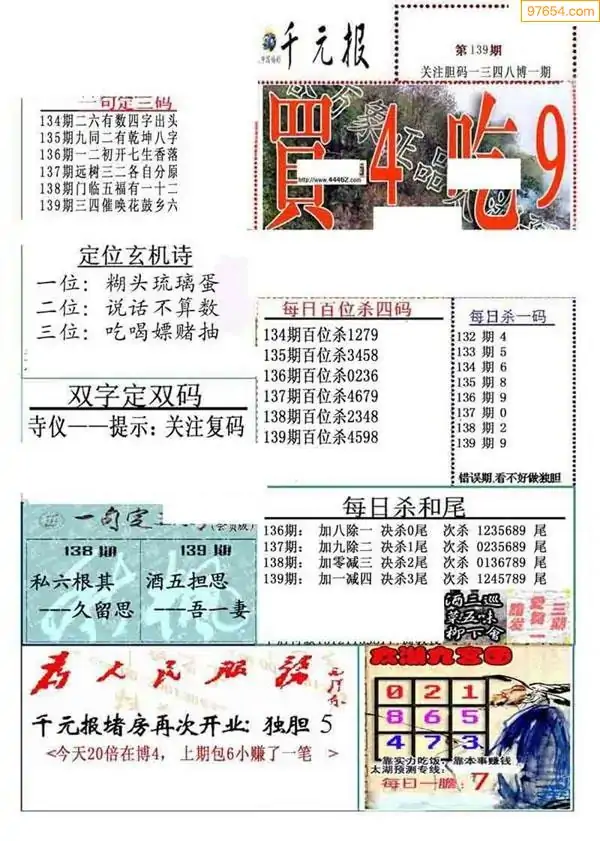 97654.com
千元报
第139期
关注胆码一三四八博一期
一句定三码
134期二六有数四字出头
135期九同二有乾坤八字
136期一二初开七生香落
137期远树三二各自分原
138期门临五福有一十二
139期三四催唤花鼓乡六
買4吃9
http://www.44462.com
定位玄机诗
一位：糊头琉璃蛋
二位：说话不算数
三位：吃喝嫖赌抽
每日百位杀四码
134期百位杀1279
135期百位杀3458
136期百位杀0236
137期百位杀4679
138期百位杀2348
139期百位杀4598
每日杀一码
132期 4
133期 5
134期 6
135期 8
136期 9
137期 0
138期 2
139期 9
错误期,看不好做独胆
双字定双码
寺仪——提示：关注复码
每日杀和尾
136期： 加八除一 决杀0尾 次杀 1235689 尾
137期： 加九除二 决杀1尾 次杀 0235689 尾
138期： 加零减三 决杀2尾 次杀 0136789 尾
139期： 加一减四 决杀3尾 次杀 1245789 尾
一句定
(会员版)
138期
私六根其
---久留思
139期
酒五担思
---吾一妻
酒三巡
菜五味
柳下會
三期
为人民服務
千元报堵房再次开业：独胆 5
<今天20倍在博4，上期包6小赚了一笔 >
太湖九宫图
0 2 1
8 6 5
4 7 3
靠实力吃饭，靠本事赚钱
太湖预测专线:
每日一胆: 7